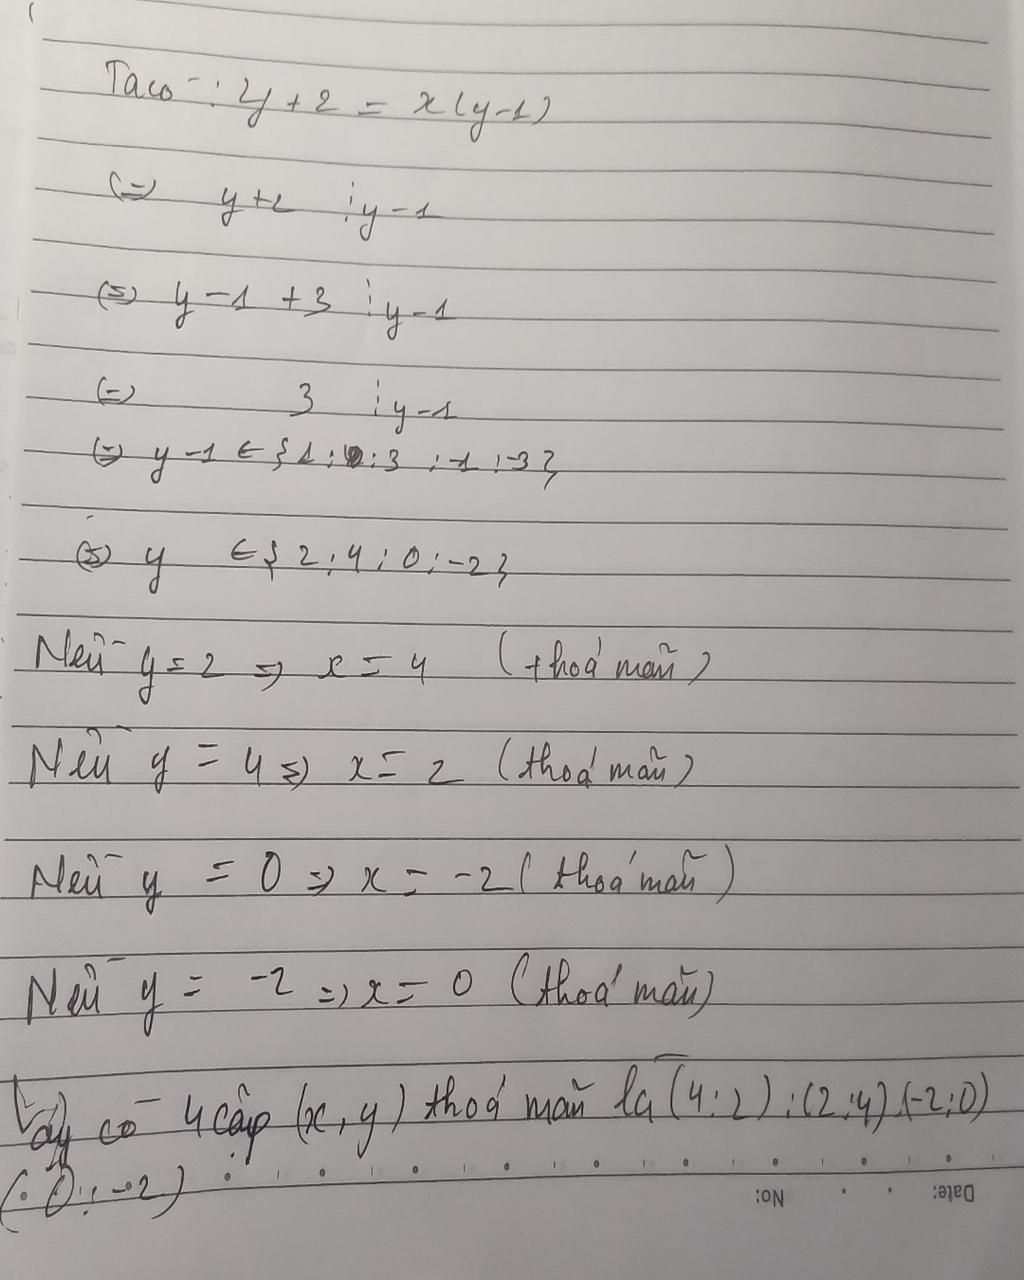 Ta có : y + 2 = x(y-1)
(=) y+2 ⋮ y-1
(=) y-1 +3 ⋮ y-1
(=) 3 ⋮ y-1
(=) y-1 ∈ {1; 3 ; -1 ; -3}
(=) y ∈ {2; 4; 0; -2}
Nếu y = 2 => x = 4 (thoả mãn)
Nếu y = 4 => x = 2 (thoả mãn)
Nếu y = 0 => x = -2 (thoả mãn)
Nếu y = -2 => x = 0 (thoả mãn)
Vậy có 4 cặp (x, y) thoả mãn là (4; 2) ; (2; 4) (-2; 0)
(0; -2)
No: Date: